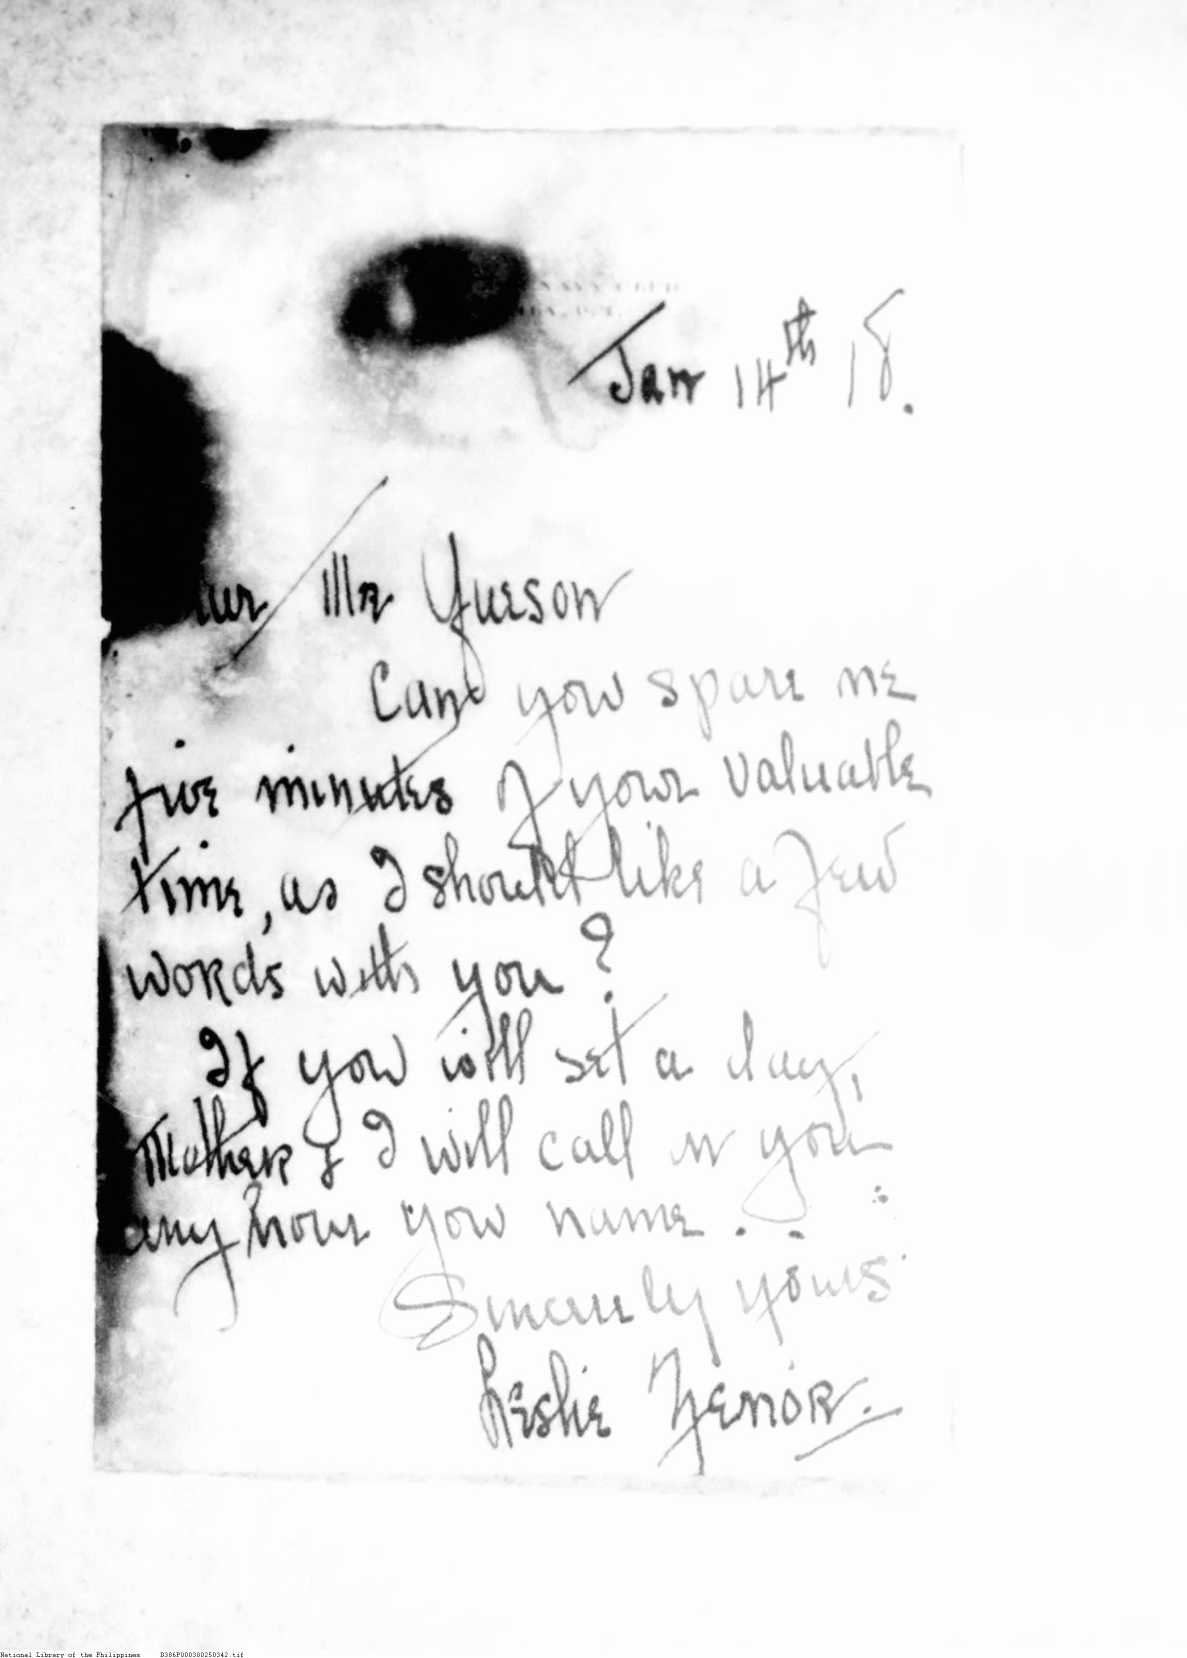 NAVY CLUB
Jan 14th 18.
Mr Yueson
Can you spare me
five minutes of your valuable
time, as I should like a few
words with you?
If you will set a day,
Mother & I will call on you
any hour you name.
Sincerely yours
Leslie
National Library of the Philippines D386P000380250342.tif